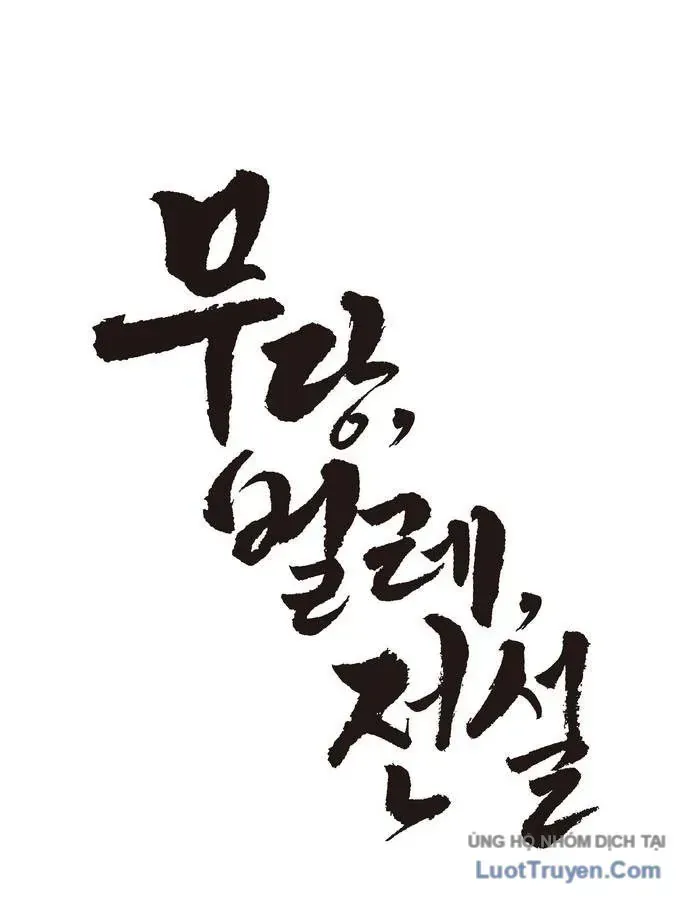 무당,
벌레,
전설
ỦNG HỘ NHÓM DỊCH TẠI
LuotTruyen.Com